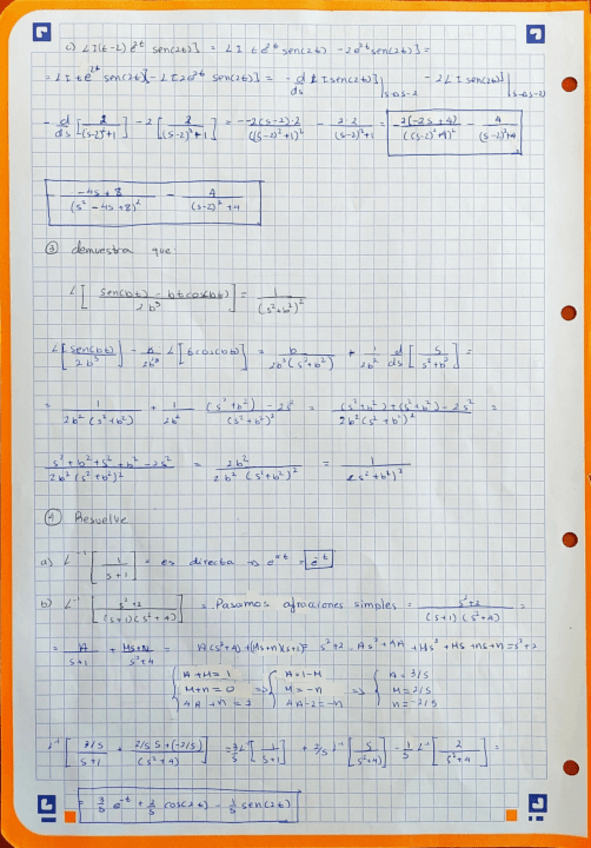 c) L[(t-2) e^2t sen(2t)] = L[t e^2t sen(2t) - 2e^2t sen(2t)] =
= L[t e^2t sen(2t)] - L[2e^2t sen(2t)] = - d/ds L[sen(2t)]|s→s-2 - 2L[sen(2t)]|s→s-2
-4s+8 / (s² - 4s + 8)² - 4 / (s-2)² + 4
③ demuestra que:
L[ sen(bt) - bt cos(bt) / 2b³ ] = 1 / (s²+b²)²
L[ sen(bt) / 2b³ ] - b / 2b³ L[t cos(bt)] = b / 2b³(s²+b²) + 1 / 2b² d/ds [ s / s²+b² ] =
= 1 / 2b²(s²+b²) + 1 / 2b² (s²+b²) - 2s² / (s²+b²)² = (s²+b²)+(s²+b²) - 2s² / 2b²(s²+b²)² =
s²+b²+s²+b²-2s² / 2b²(s²+b²)² = 2b² / 2b²(s²+b²)² = 1 / (s²+b²)²
④ Resuelve
a) L⁻¹ [ 1 / s+1 ] = es directa → e^at = e^-t
b) L⁻¹ [ s²+2 / (s+1)(s²+4) ] = Pasamos a fracciones simples = s²+2 / (s+1)(s²+4) =
= A / s+1 + Ms+n / s²+4 = A(s²+4)+(Ms+n)(s+1)= s²+2 . As²+4A +Ms²+Ms+ns+n=s²+2
A+M=1 A=1-M A=3/5
M+n=0 => M=-n => M=2/5
4A+n=2 4A-2=-n n=-2/5
L⁻¹ [ 3/5 / s+1 + 2/5 s+(-2/5) / (s²+4) ] = 3/5 L⁻¹ [ 1 / s+1 ] + 2/5 L⁻¹ [ s / s²+4 ] - 1/5 L⁻¹ [ 2 / s²+4 ] =
= 3/5 e^-t + 2/5 cos(2t) - 1/5 sen(2t)